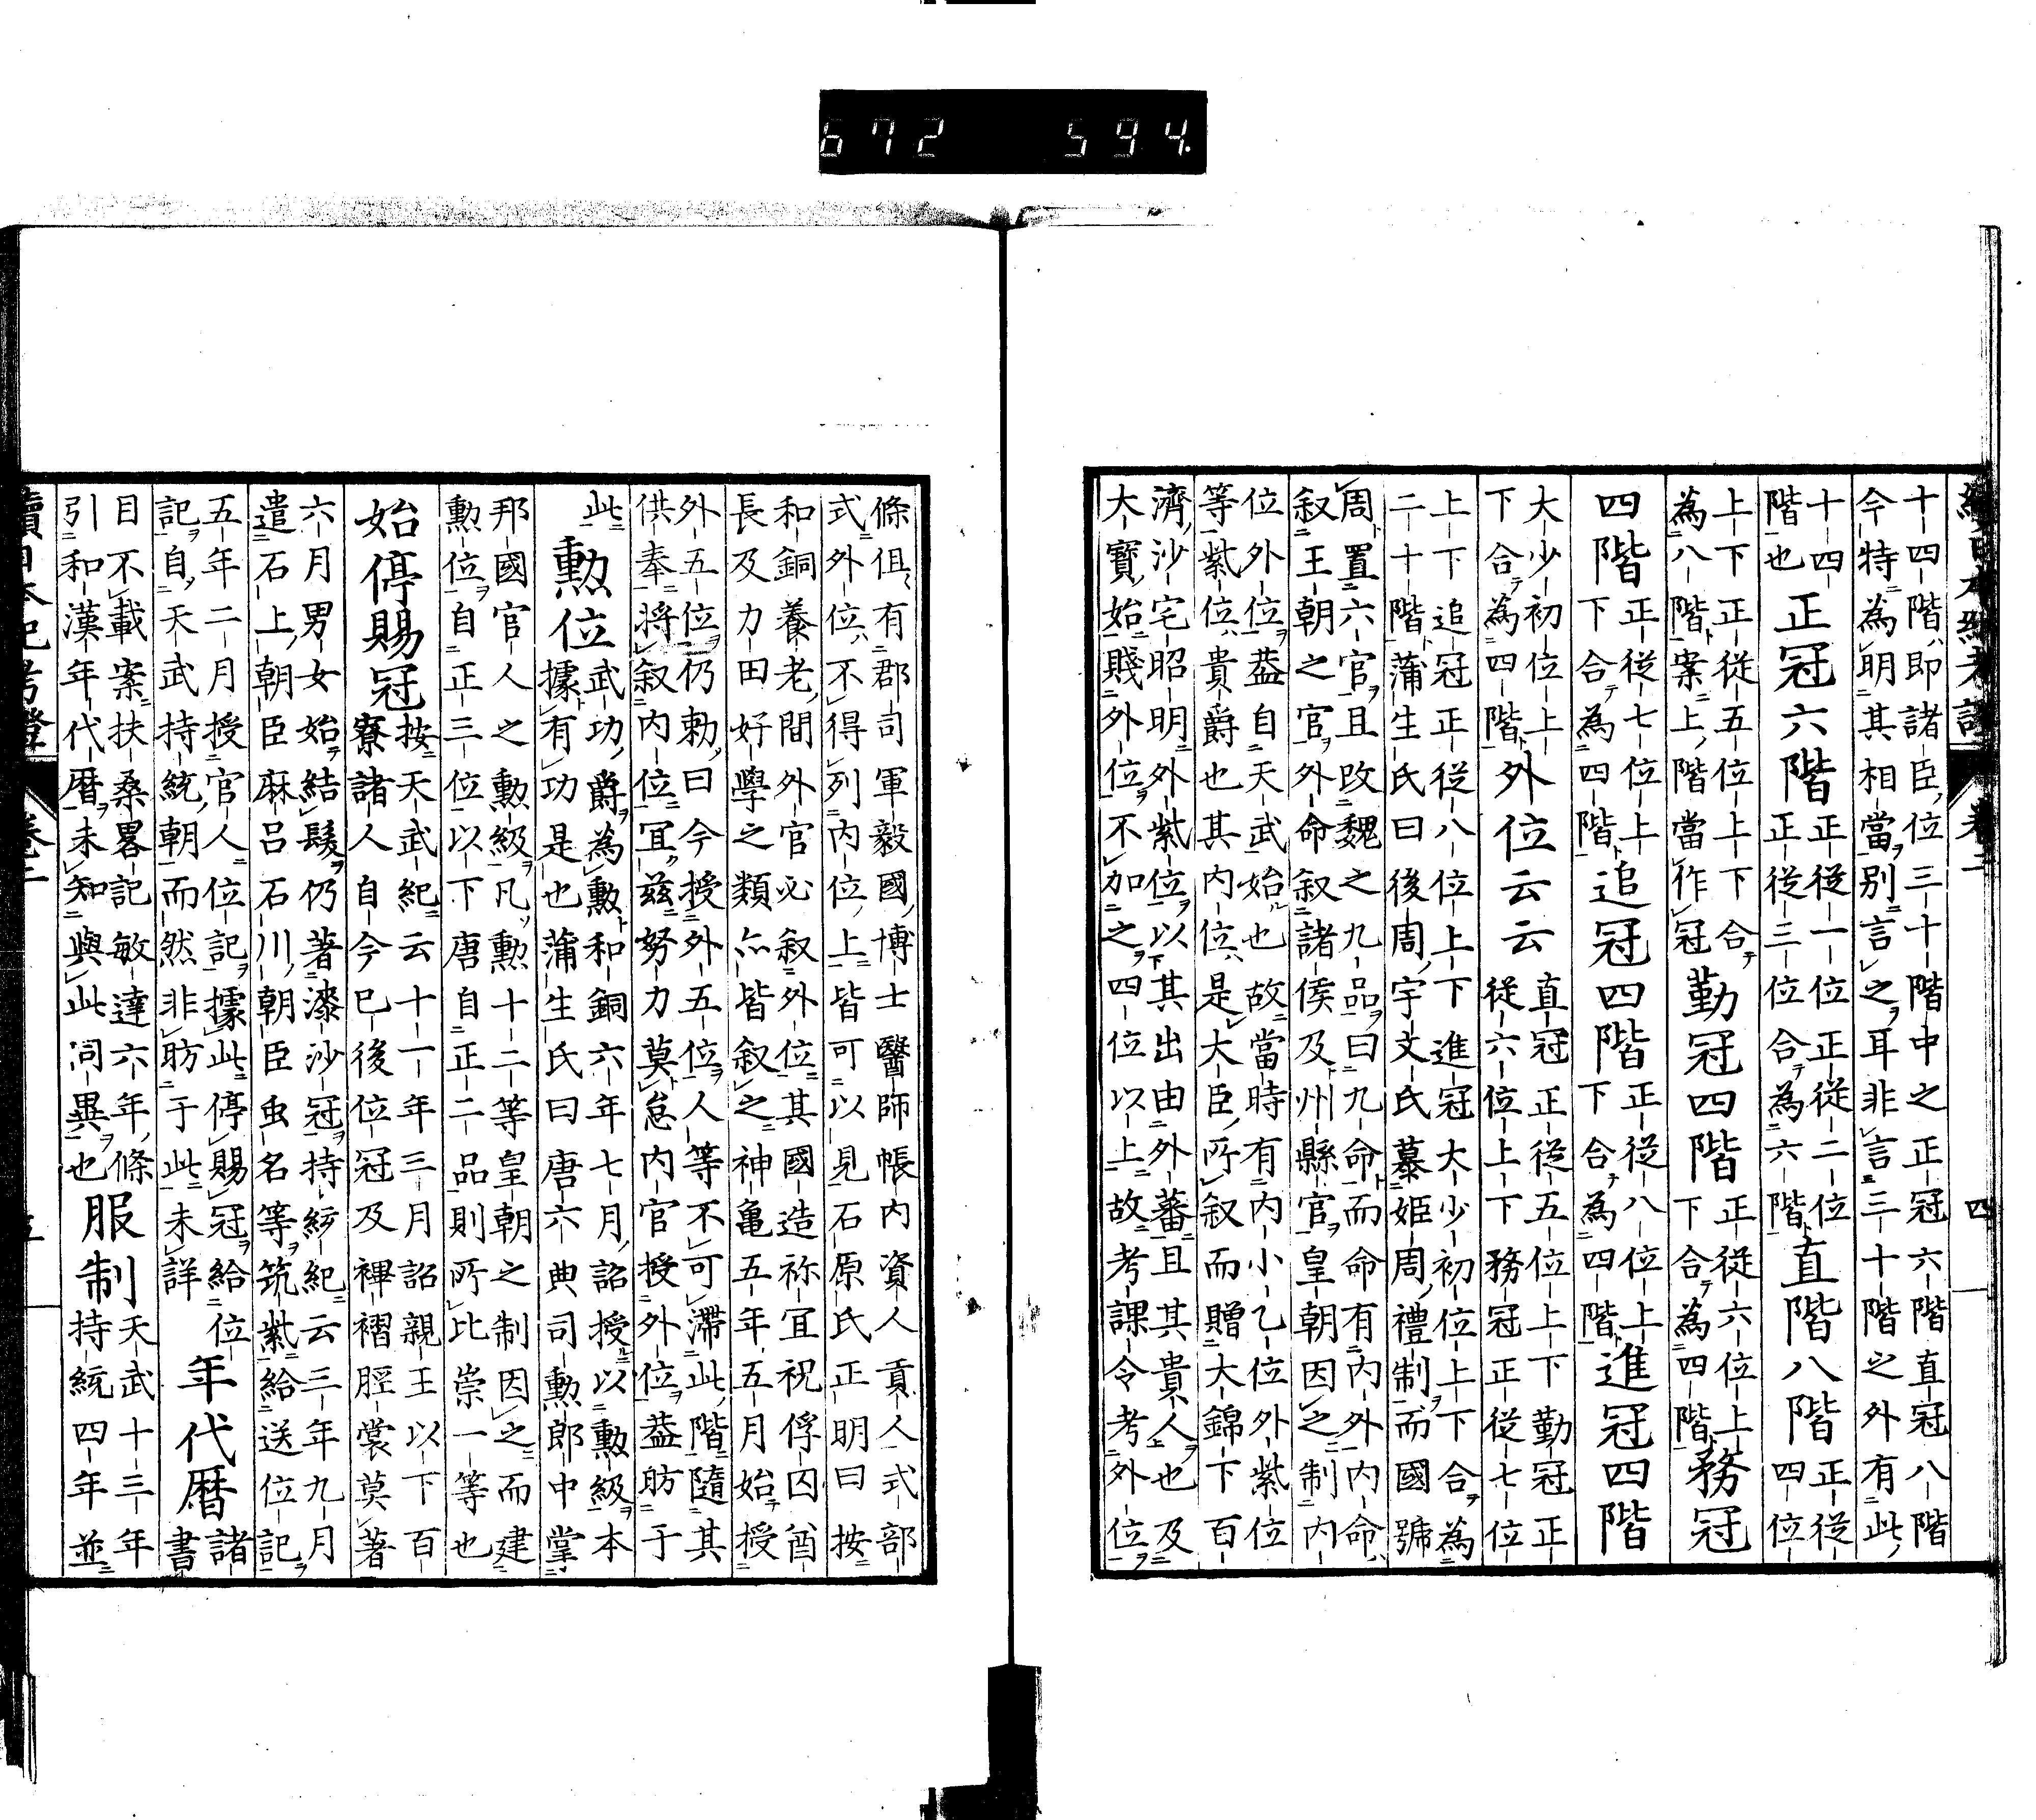 672 594.
十四階即諸臣位三十階中之正冠六階直冠八階
今特為明其相當別言之耳非言三十階之外有此
十四
階也
正冠六階
正從一位正從二位
正從三位合為六階
直階八階
正從
四位
上下正從五位上下合
為八階案上階當作冠
勤冠四階
正從六位上
下合為四階
務冠
四階
正從七位上
下合為四階
追冠四階
正從八位上
下合為四階
進冠四階
大少初位上
下合為四階
外位云云
直冠正從五位上下勤冠正
從六位上下務冠正從七位
上下追冠正從八位上下進冠大少初位上下合為
二十階蒲生氏曰後周宇文氏慕姬周禮制而國號
周置六官且改魏之九品曰九命而命有内外内命
叙王朝之官外命叙諸侯及州縣官皇朝因之制内
位外位蓋自天武始也故當時有内小乙位外紫位
等紫位貴爵也其内位是大臣所叙而贈大錦下百
濟沙宅昭明外紫位以其出由外蕃且其貴人也及
大寶始賤外位不加之四位以上故考課令考外位
條俱有郡司軍毅國博士醫師帳内資人貢人式部
式外位不得列内位上皆可以見石原氏正明曰按
和銅養老間外官必叙外位其國造祢宜祝俘囚酋
長及力田好學之類亦皆叙之神亀五年五月始授
外五位仍勅曰今授外五位人等不可滯此階隨其
供奉将叙内位宜茲努力莫怠内官授外位蓋昉于
此
勲位
武功爵為勲和銅六年七月詔授以勲級本
據有功是也蒲生氏曰唐六典司勲郎中掌
邦國官人之勲級凡勲十二等皇朝之制因之而建
勲位自正三位以下唐自正二品則所比崇一等也
始停賜冠
按天武紀云十一年三月詔親王以下百
寮諸人自今已後位冠及襅褶脛裳莫著
六月男女始結髮仍著漆沙冠持統紀云三年九月
遣石上朝臣麻呂石川朝臣虫名等筑紫給送位記
五年二月授官人位記據此停賜冠給位
記自天武持統朝而然非昉于此未詳
年代暦
諸
書
目不載案扶桑畧記敏達六年條
引和漢年代暦未知與此同異也
服制
天武十三年
持統四年並